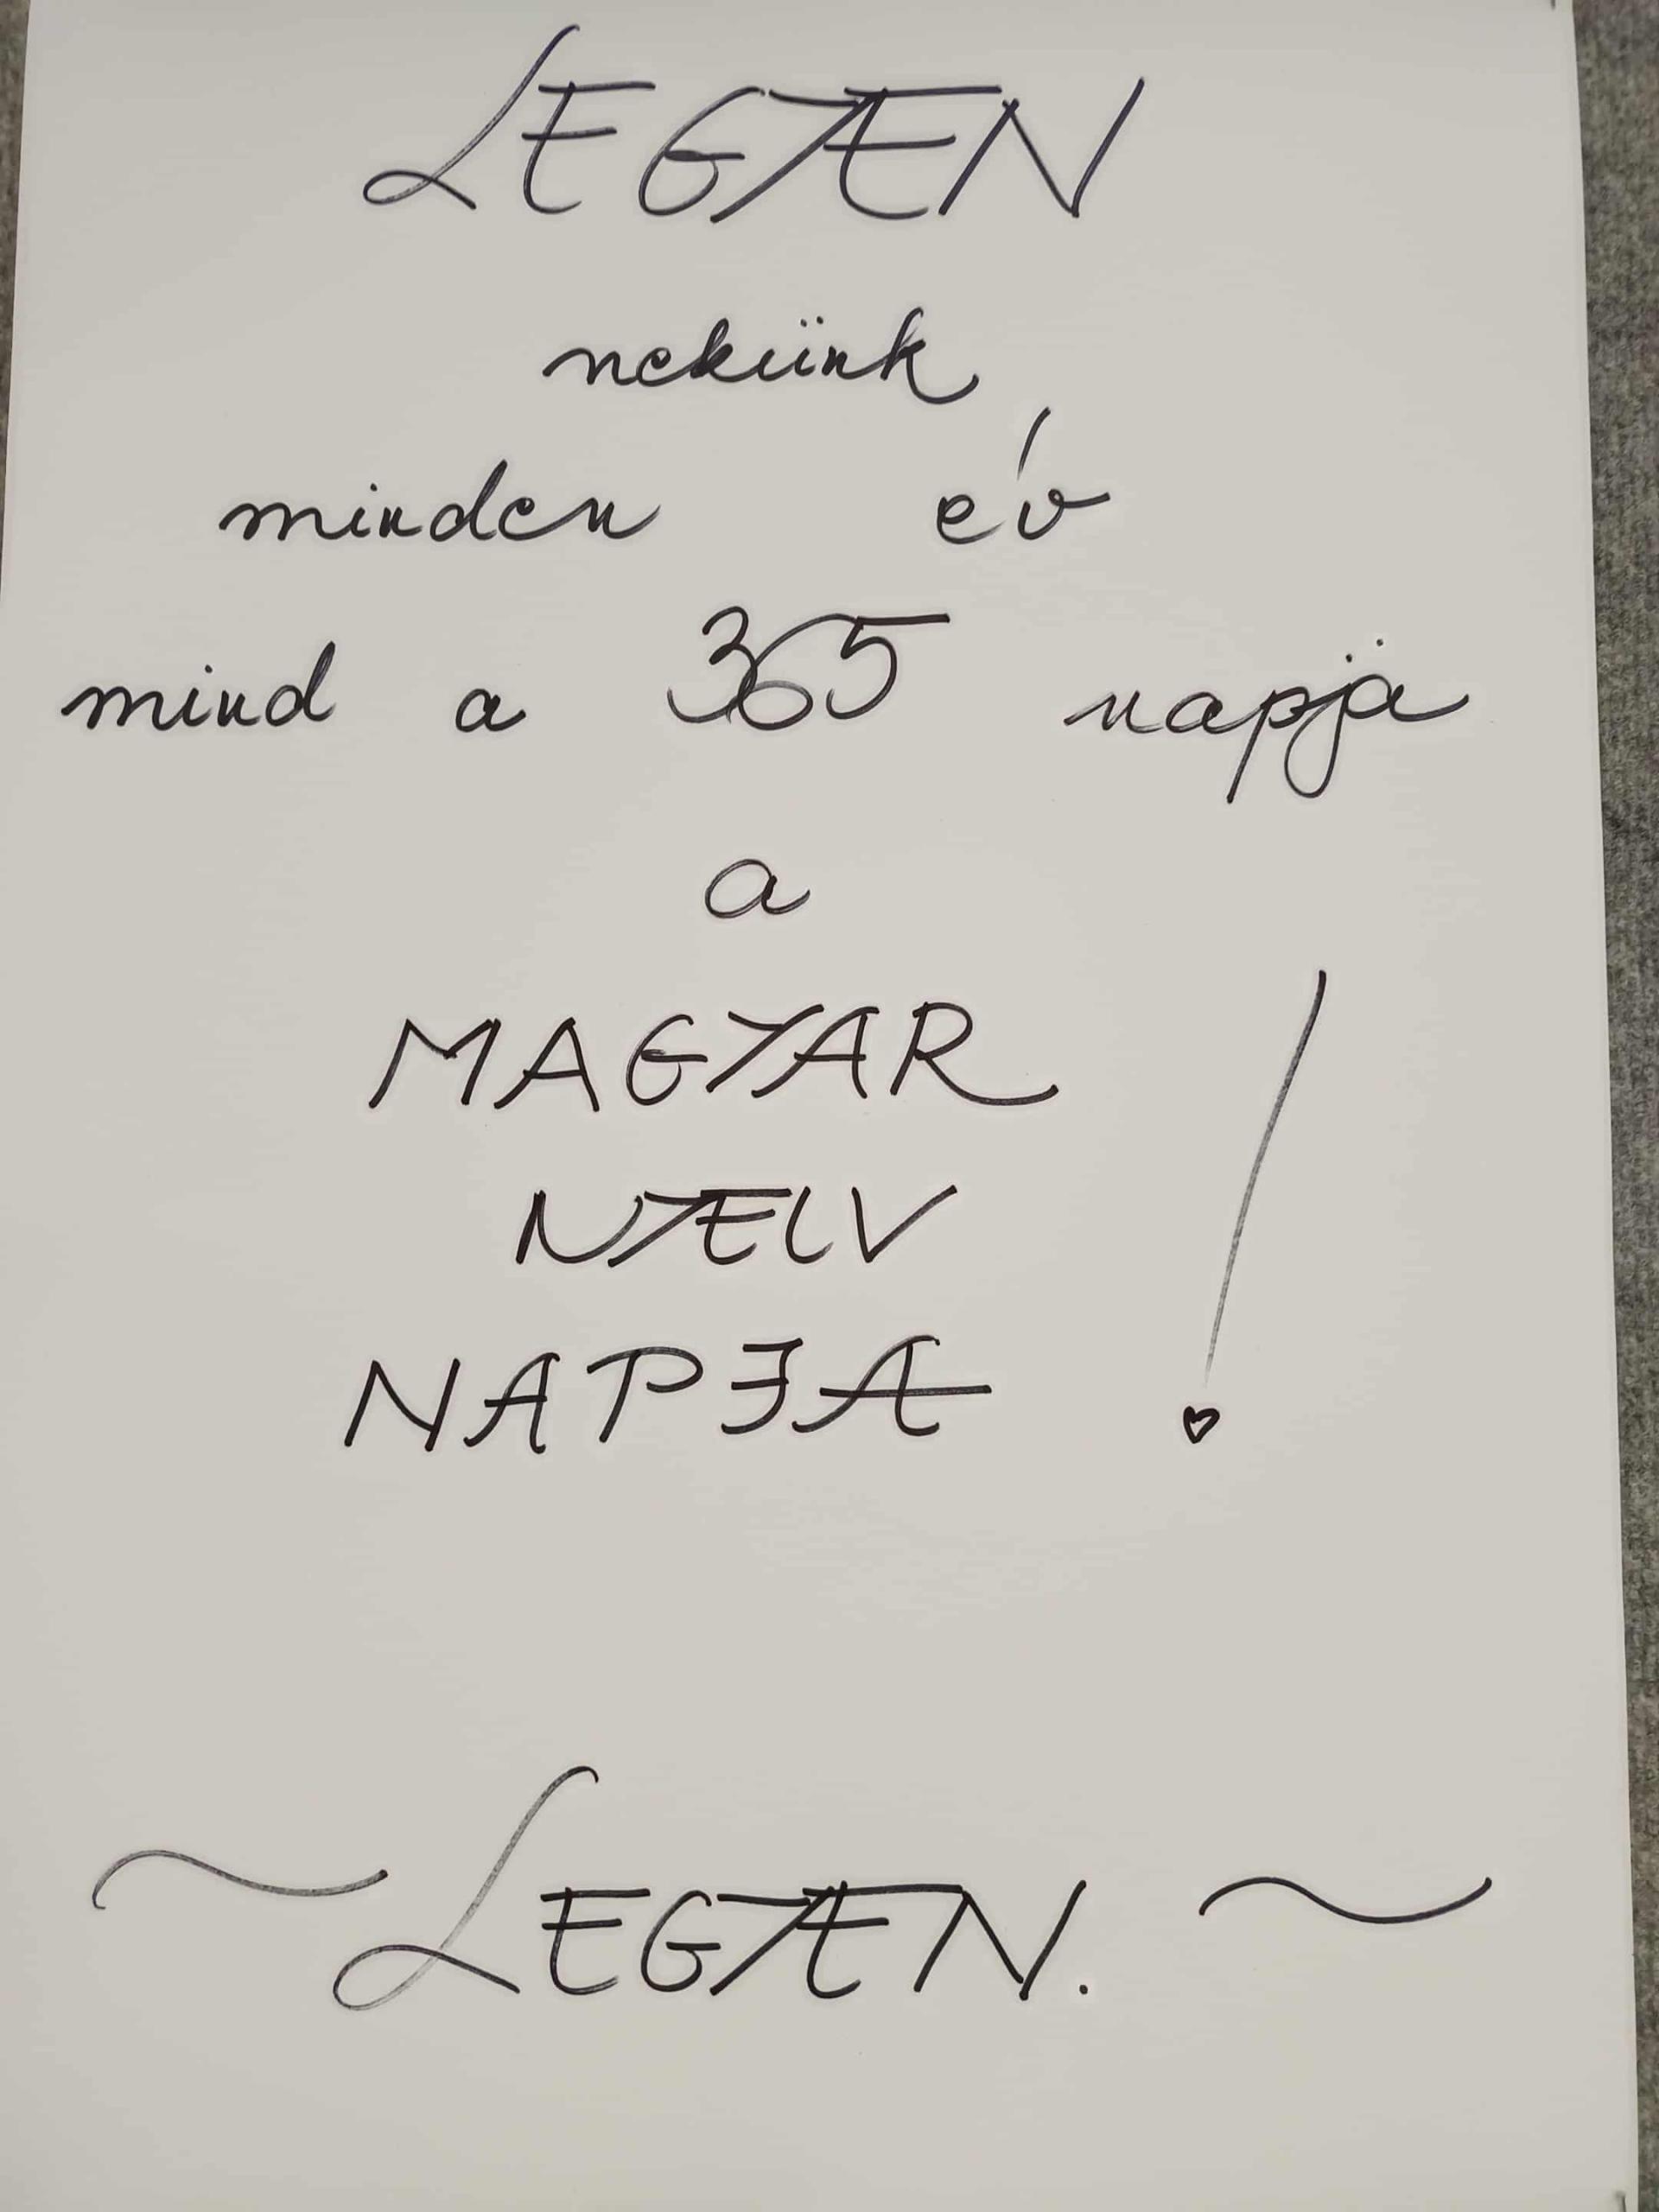 LEGYEN
nekünk
minden év
mind a 365 napja
a
MAGYAR
NYELV
NAPJA!
~LEGYEN.~